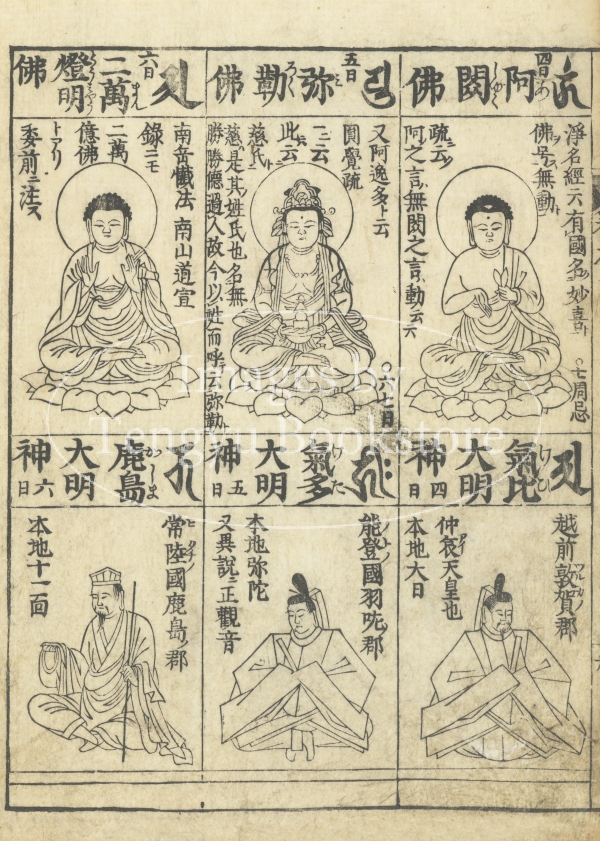 四日
阿閦佛
あしゆく
淨名經云有國名妙喜ト
佛号無動ト
疏ニ云
阿之言無閦之言動云云
○七周忌
五日
弥勒佛
みろく
又阿逸多ト云
圓覺疏
ニ云
此ニ云
慈氏ト
慈ハ是其姓氏也名無
勝勝德過人故今以姓而呼云弥勒ト
○六七日
六日
二萬燈明佛
南岳懺法 南山道宣
錄ニモ
二萬
億佛
トアリ
委前ニ注ス
氣比大明神
けひ
四日
越前敦賀郡
仲哀天皇也
本地大日
氣多大明神
けた
五日
能登國羽咋郡
本地弥陀
又異説ニ正觀音
鹿島大明神
かしま
六日
常陸國鹿島郡
本地十一面
Images by
Tengyu Bookstore